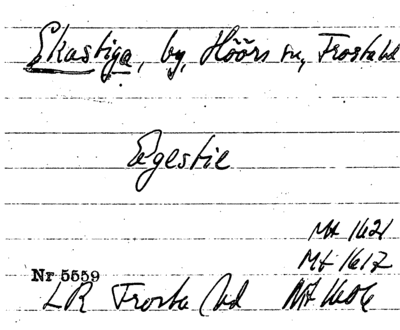 Ekastiga, by, Höörs sn, Frosta hd
Egestie
Mt 1621
Mt 1617
Nr 5559
LR Frosta hd Mt 1606